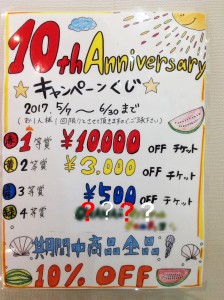 10th Anniversary
キャンペーンくじ
2017. 5/7 〜 6/30 まで
(お1人様1回限りとさせて頂きますのでご了承下さい)
赤 1等賞 ¥10,000 OFF チケット
黄 2等賞 ¥3,000 OFF チケット
青 3等賞 ¥500 OFF チケット
緑 4等賞 ? ? ? ?
期間中商品全品
10% OFF